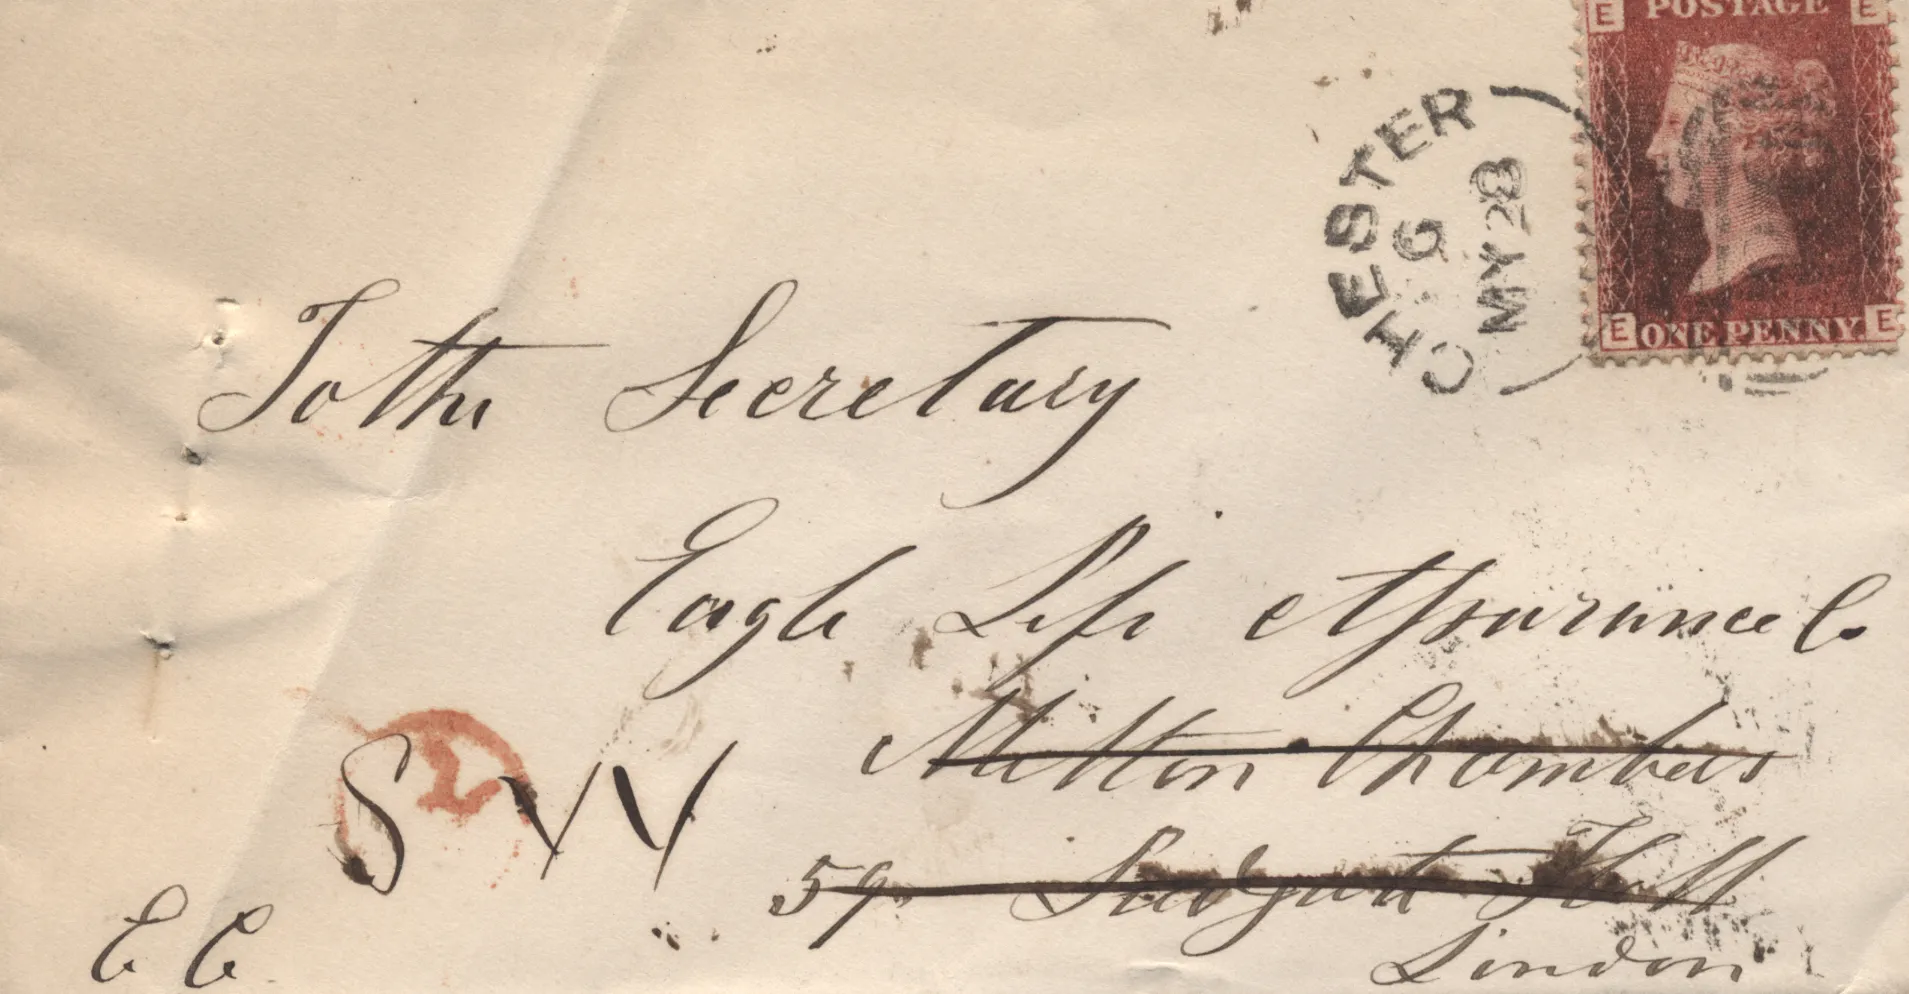 E POSTAGE E
E ONE PENNY. E
CHESTER
G
MY 28
To the Secretary
Eagle Life Assurance Co
Milton Chambers
59 Ludgate Hill
London
S W
E C